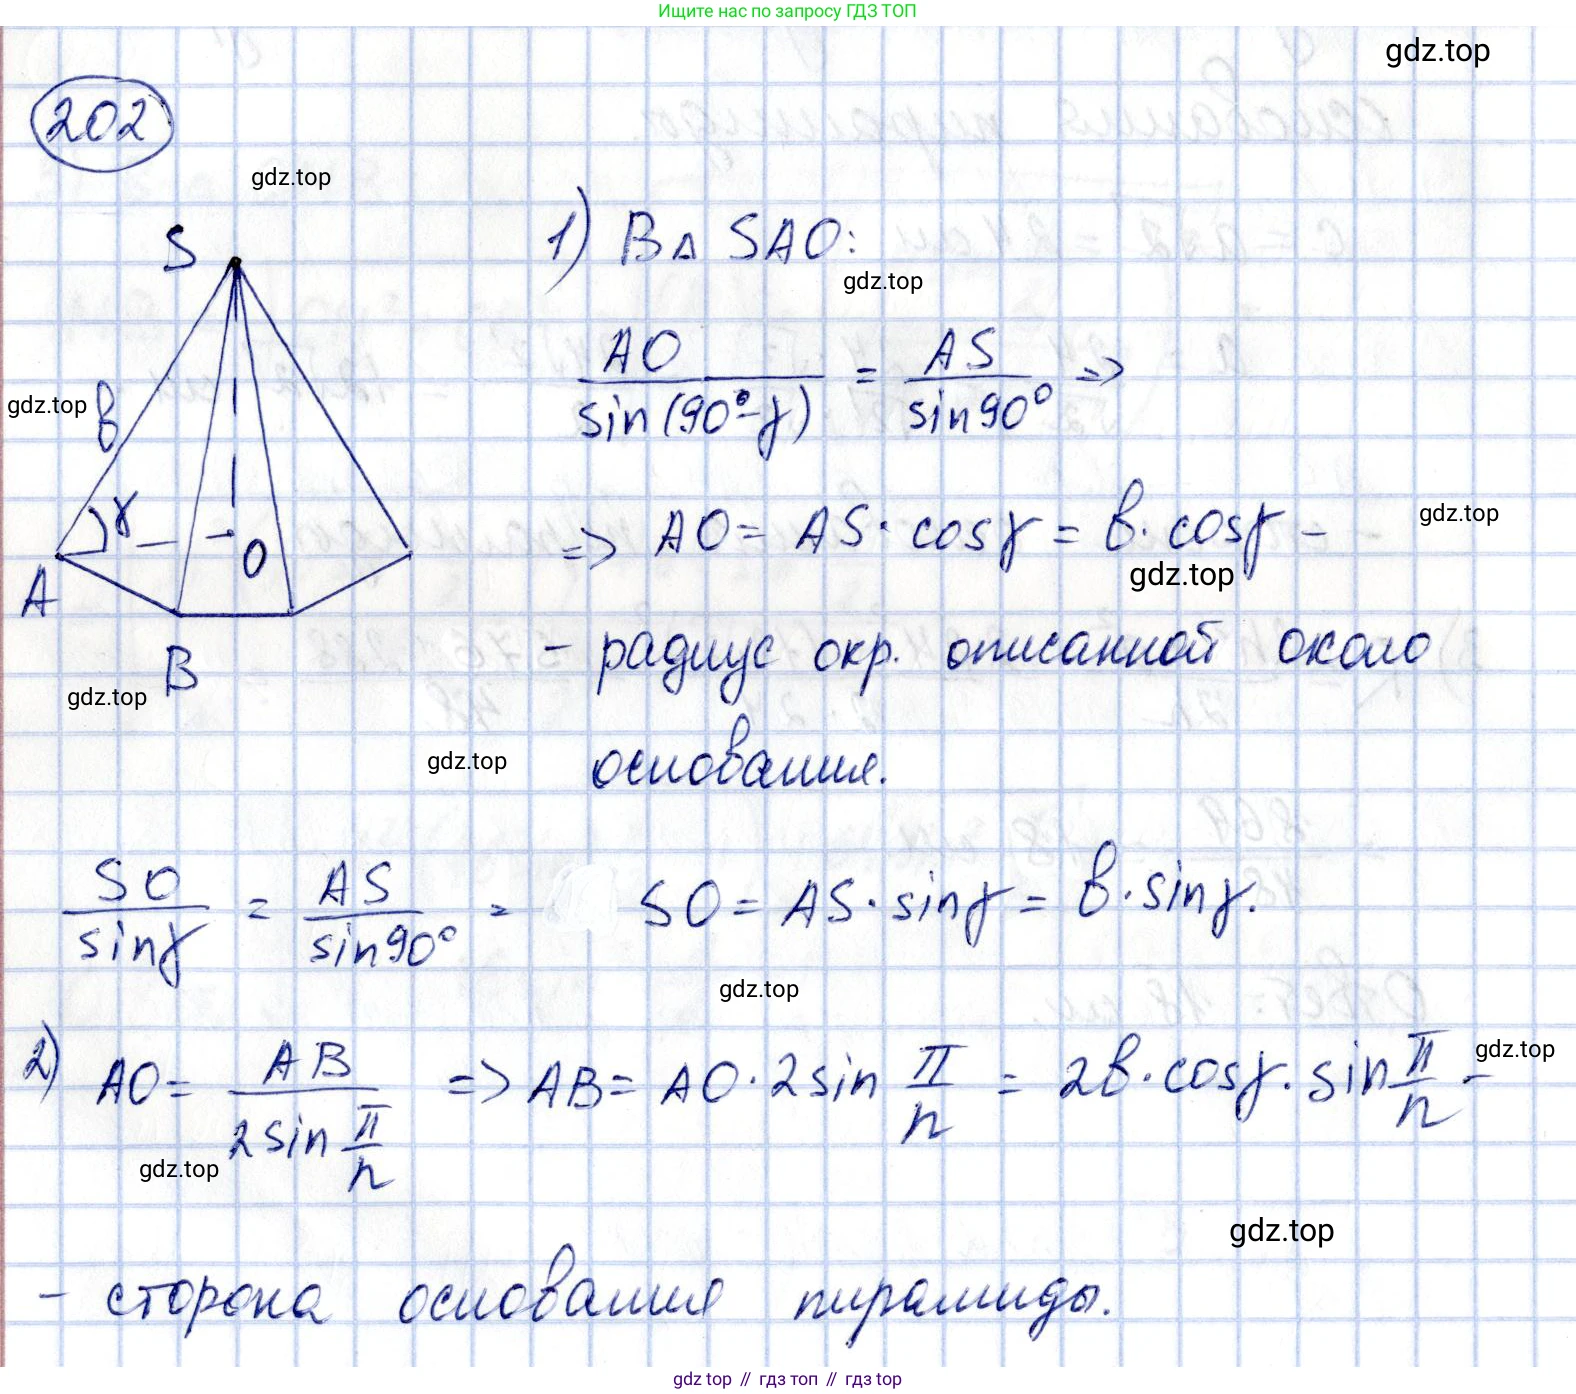 Ищите нас по запросу ГДЗ ТОП
gdz.top
202
gdz.top
S
1) В △ SAO:
gdz.top
AO/sin(90°-γ) = AS/sin90° =>
gdz.top
в
γ
O
A
B
=> AO = AS · cosγ = в · cosγ -
gdz.top
gdz.top
- радиус окр. описанной около
gdz.top
gdz.top
основания.
SO/sinγ = AS/sin90° = SO = AS · sinγ = в · sinγ.
gdz.top
2) AO = AB/2sin π/n => AB = AO · 2sin π/n = 2в · cosγ · sin π/n -
gdz.top
gdz.top
gdz.top
- сторона основания пирамиды.
gdz.top // гдз топ // гдз top